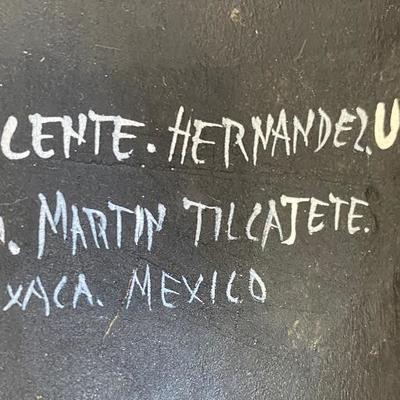 CENTE. HERNANDEZ.U
. MARTIN TILCAJETE.
XACA. MEXICO